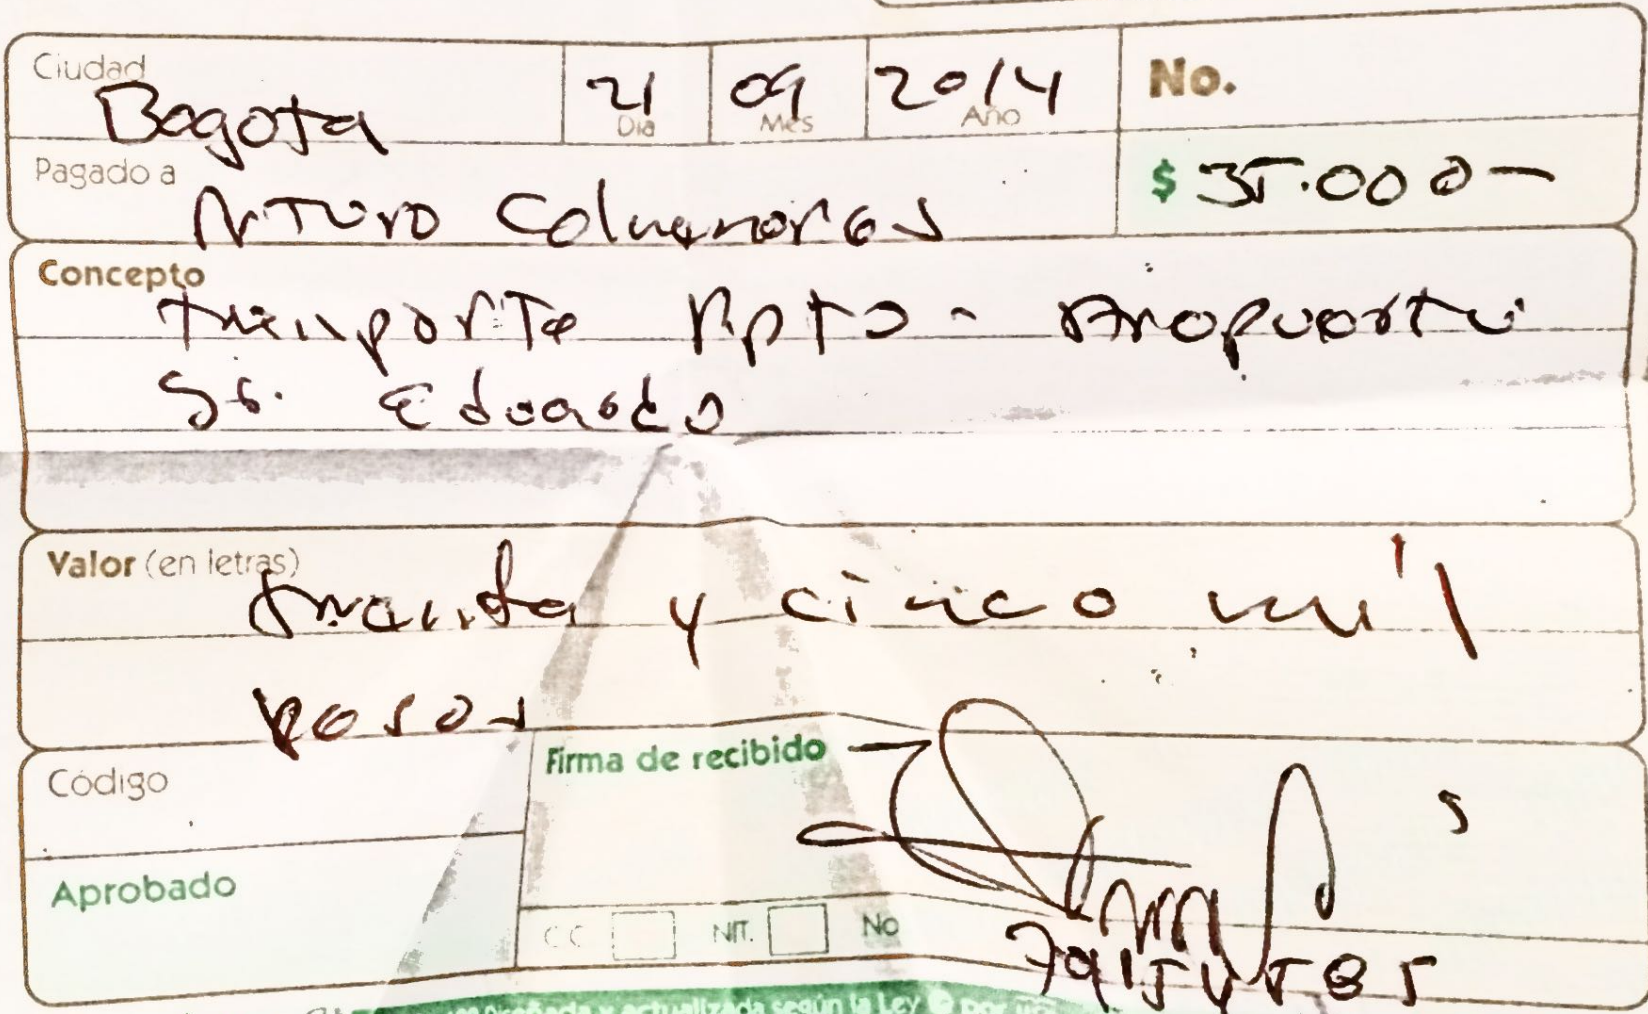 Ciudad
Bogota
21 Dia
09 Mes
2014 Año
No.
Pagado a
Arturo Colmenares
$ 35.000-
Concepto
transporte Apto - Aropuerto
Sr. Eduardo
Valor (en letras)
treinta y cinco mil
pesos
Código
Firma de recibido
Aprobado
CC NIT. No
79154585
Diseñada y actualizada según la Ley © por